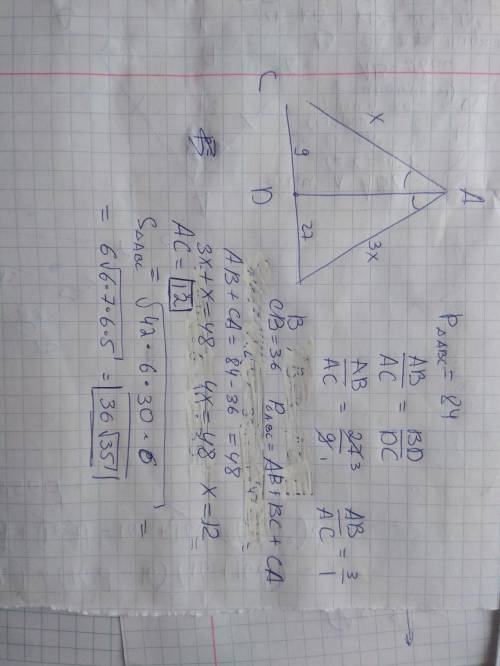 P△ABC = 84
A
x
3x
C
9
D
27
B
AB/AC = BD/DC
AB/AC = 27 3/9 1
AB/AC = 3/1
CB = 36 P△ABC = AB + BC + CA
AB + CA = 84 - 36 = 48
3x + x = 48, 4x = 48 x = 12
AC = 12
S△ABC = √42·6·30·6 =
= 6√6·7·6·5 = 36√35